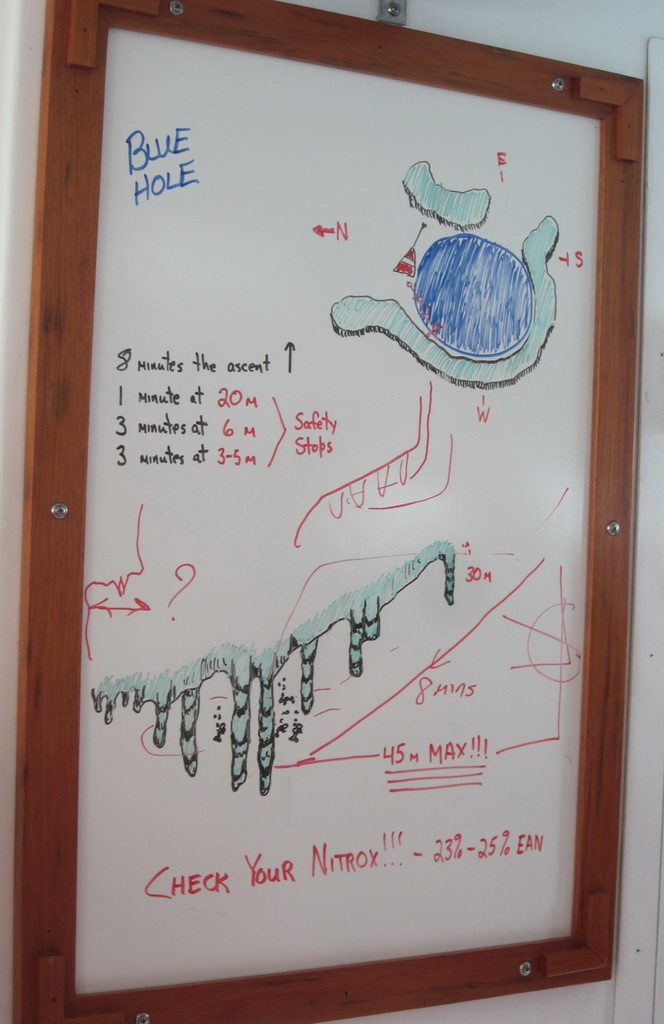 BLUE
HOLE
E
N
S
W
8 minutes the ascent ↑
1 minute at 20 m
3 minutes at 6 m
3 minutes at 3-5 m
Safety
Stops
?
30 m
8 mins
45 m MAX!!!
CHECK YOUR NITROX!!! - 23%-25% EAN